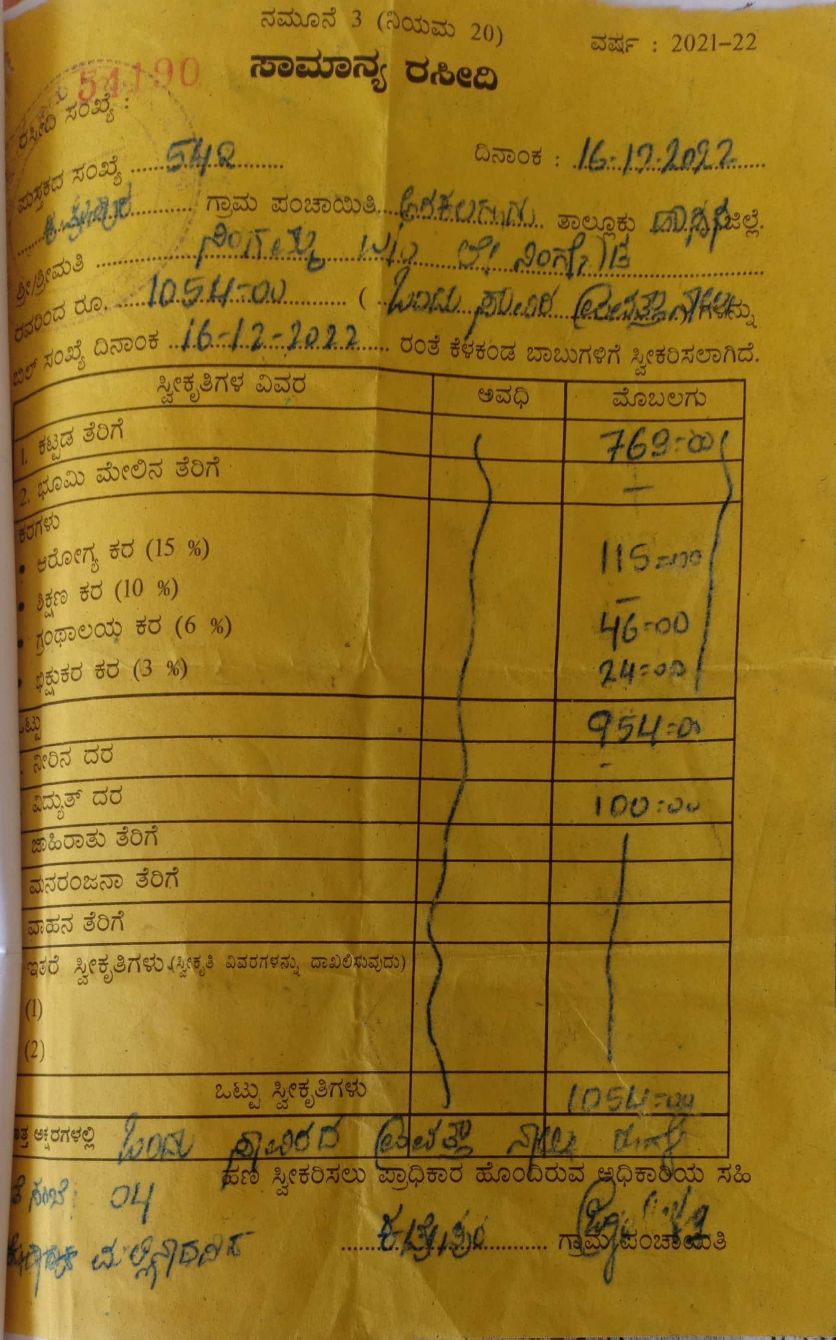 ನಮೂನೆ 3 (ನಿಯಮ 20)
ವರ್ಷ : 2021-22
ಸಾಮಾನ್ಯ ರಸೀದಿ
54190
ರಸೀದಿ ಸಂಖ್ಯೆ :
ಪುಸ್ತಕದ ಸಂಖ್ಯೆ 542 ದಿನಾಂಕ : 16-12-2022
ಗ್ರಾಮ ಪಂಚಾಯಿತಿ ಅರಕಲಗೂಡು ತಾಲ್ಲೂಕು ಹಾಸನ ಜಿಲ್ಲೆ.
ಶ್ರೀ/ಶ್ರೀಮತಿ ನಿಂಗಮ್ಮ
ರವರಿಂದ ರೂ. 1054-00 ( ಒಂದು ಸಾವಿರ ಐವತ್ತಾನಾಲ್ಕು ಗಳನ್ನು
ಬಿಲ್ ಸಂಖ್ಯೆ ದಿನಾಂಕ 16-12-2022 ರಂತೆ ಕೆಳಕಂಡ ಬಾಬುಗಳಿಗೆ ಸ್ವೀಕರಿಸಲಾಗಿದೆ.
ಸ್ವೀಕೃತಿಗಳ ವಿವರ ಅವಧಿ ಮೊಬಲಗು
1. ಕಟ್ಟಡ ತೆರಿಗೆ 769-00
2. ಭೂಮಿ ಮೇಲಿನ ತೆರಿಗೆ —
ಕರಗಳು
• ಆರೋಗ್ಯ ಕರ (15 %) 115-00
• ಶಿಕ್ಷಣ ಕರ (10 %) —
• ಗ್ರಂಥಾಲಯ ಕರ (6 %) 46-00
• ಭಿಕ್ಷುಕರ ಕರ (3 %) 24-00
ಒಟ್ಟು 954-00
ನೀರಿನ ದರ -
ವಿದ್ಯುತ್ ದರ 100-00
ಜಾಹಿರಾತು ತೆರಿಗೆ
ಮನರಂಜನಾ ತೆರಿಗೆ
ವಾಹನ ತೆರಿಗೆ
ಇತರೆ ಸ್ವೀಕೃತಿಗಳು (ಸ್ವೀಕೃತಿ ವಿವರಗಳನ್ನು ದಾಖಲಿಸುವುದು)
(1)
(2)
ಒಟ್ಟು ಸ್ವೀಕೃತಿಗಳು 1054-00
ಅಕ್ಷರಗಳಲ್ಲಿ ಒಂದು ಸಾವಿರದ ಐವತ್ತಾ ನಾಲ್ಕು
ಹಣ ಸ್ವೀಕರಿಸಲು ಪ್ರಾಧಿಕಾರ ಹೊಂದಿರುವ ಅಧಿಕಾರಿಯ ಸಹಿ
04
ಗ್ರಾಮ ಪಂಚಾಯತಿ